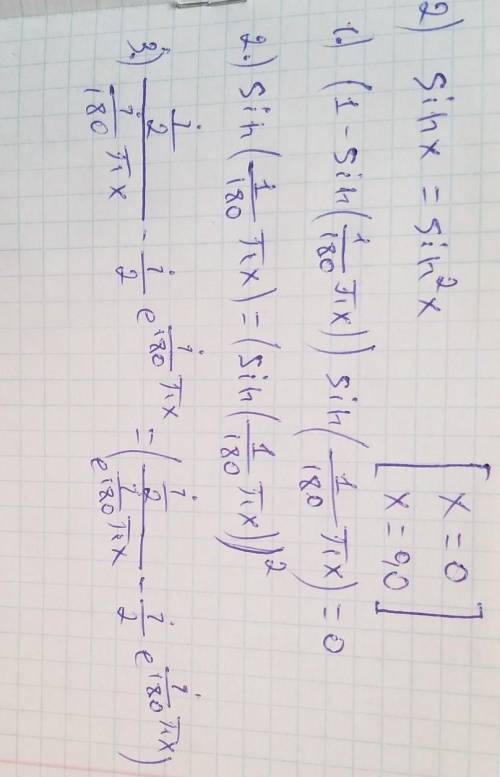 2) sin x = sin²x [x = 0
x = 90]
1.) (1 - sin(1/180 πx)) sin(1/180 πx) = 0
2.) sin(1/180 πx) = (sin(1/180 πx))²
3.) (i/2)/(i/180 πx) - i/2 e^(i/180 πx) = ((i/2)/(e^(i/180 πx)) - i/2 e^(i/180 πx))